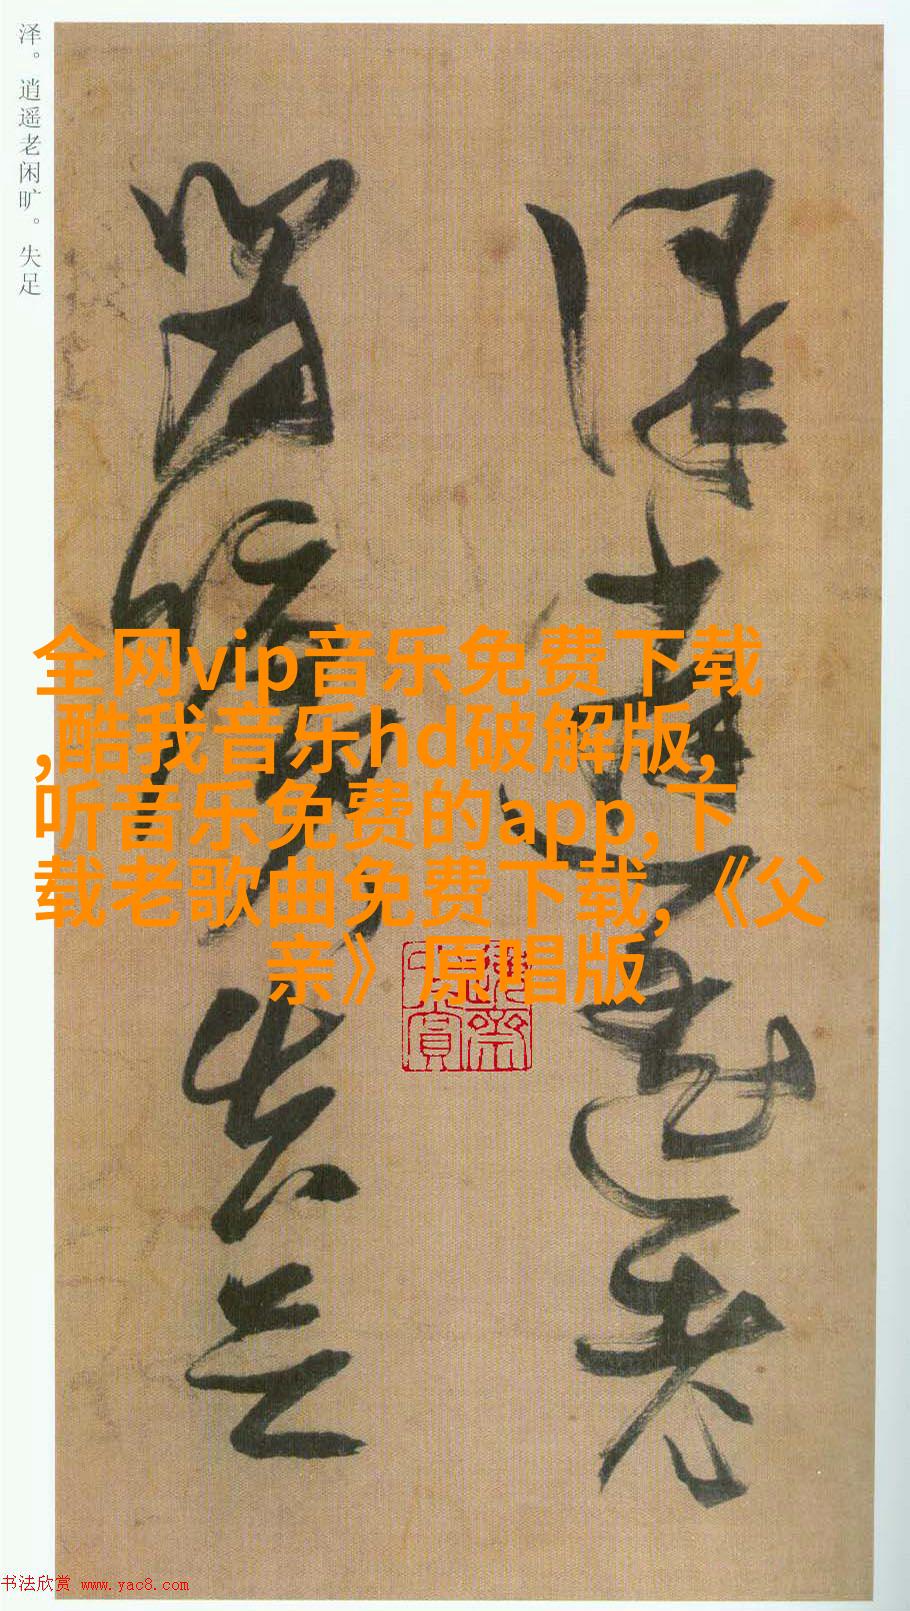 泽。逍遥老闲旷。失足
泽逍遥老
闲旷失足
全网vip音乐免费下载
,酷我音乐hd破解版,
听音乐免费的app,下
载老歌曲免费下载,《父
亲》原唱版
书法欣赏 www.yac8.com